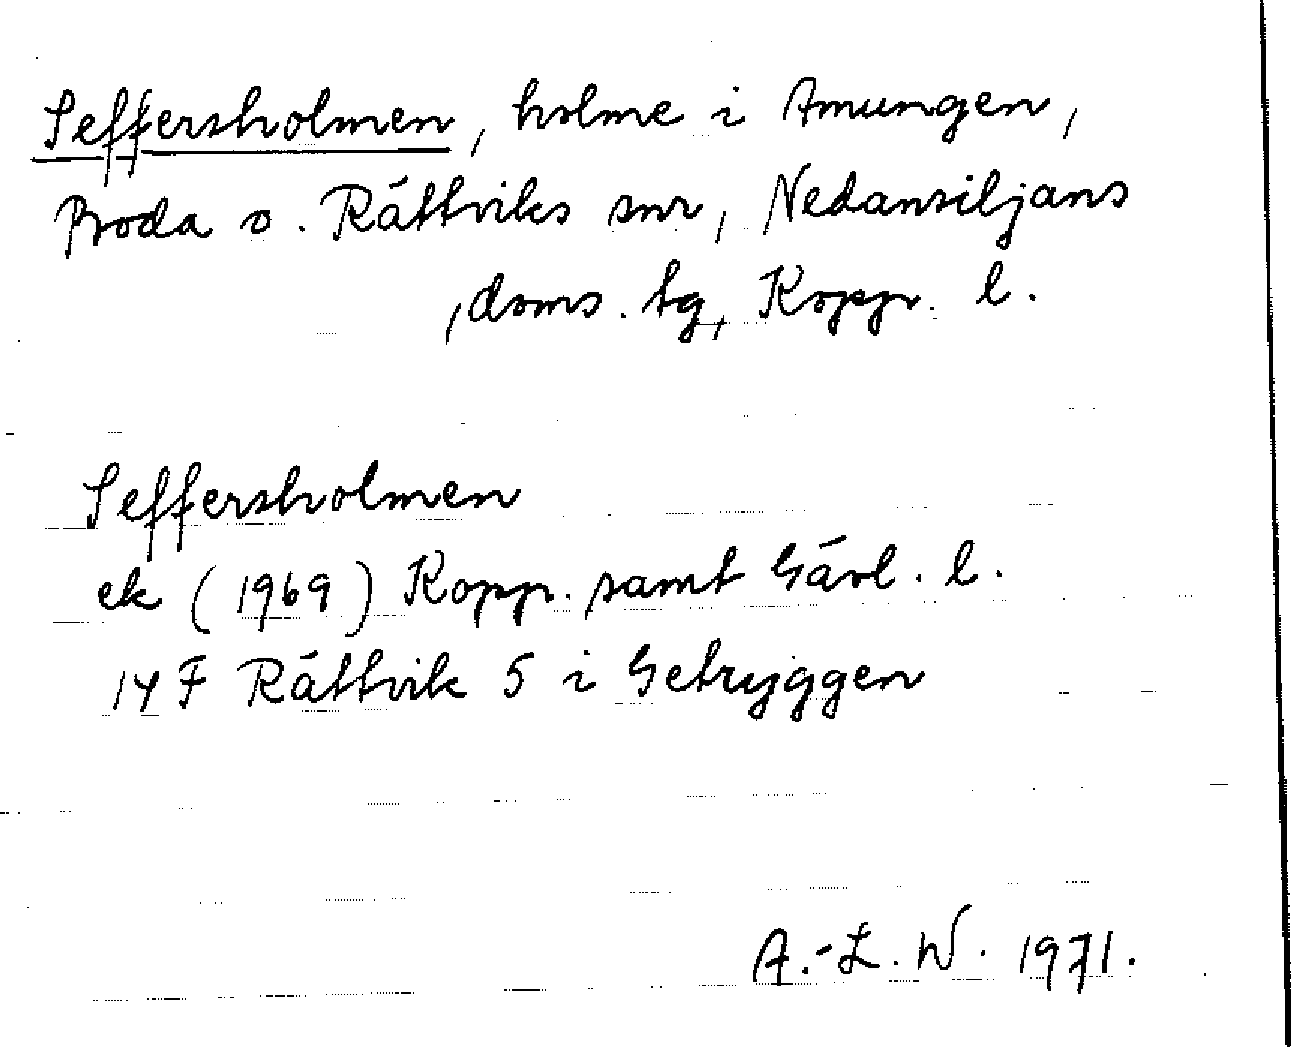 Seffersholmen, holme i Amungen,
Boda o. Rättviks snr, Nedansiljans
,doms. tg, Kopp. l.
Seffersholmen
ek (1969) Kopp. samt Gävl. l.
14 F Rättvik 5 i Getryggen
A.-L. W. 1971.